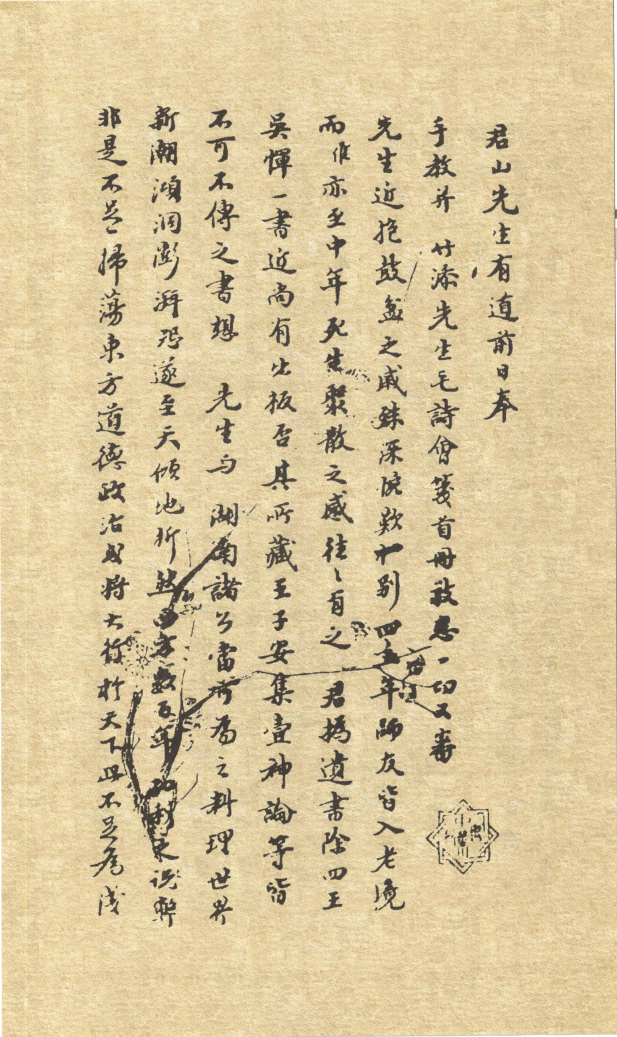 君山先生有道前日奉
手教并竹添先生毛詩會箋首冊敬悉一切又審
先生近抱鼓盆之戚殊深惋歎十別四五年師友皆入老境
而維亦至中年死生聚散之感往〻有之 君撝遺書除四王
吳惲一書近尚有出板否其所藏王子安集壹神論等皆
不可不傳之書想 先生與 湖南諸公當可為之料理世界
新潮澒洞澎湃恐遂至天傾地折然西方數百年功利之說弊
非是不足一掃蕩東方道德政治或將大行於天下此不足為淺